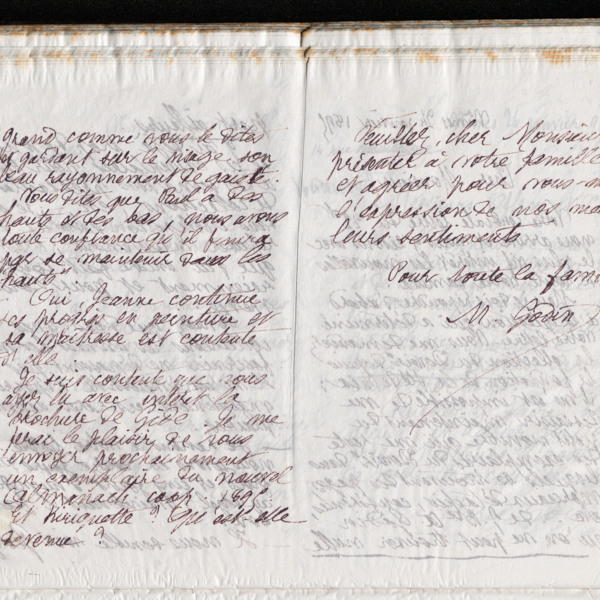 grand comme vous le dites
et gardant sur le visage son
beau rayonnement de gaieté.
Vous dites que Paul a des
hauts et des bas, nous avons
toute confiance qu'il finira
par se maintenir dans les
"hauts"
Oui, Jeanne continue
ses progrès en peinture et
sa maîtresse est contente
d'elle.
Je suis contente que vous
ayez lu avec intérêt la
brochure de Gide. Je me
ferai le plaisir de vous
envoyer prochainement
un exemplaire du nouvel
Almanach coop. 1895
Et Miquette ? Qu'est-elle
devenue ?
Veuillez, cher Monsieur
présenter à votre famille
et agréer pour vous-m
l'expression de nos me
leurs sentiments
Pour toute la fami
M. Godin